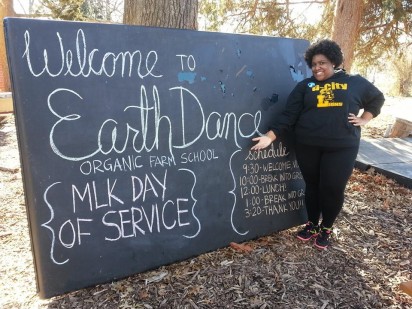 Welcome TO
EarthDance
ORGANIC FARM SCHOOL
MLK DAY
OF SERVICE
Schedule
9:30-WELCOME
10:00-BREAK INTO
12:00-LUNCH!
1:00-BREAK INTO
3:20-THANK YOU!!